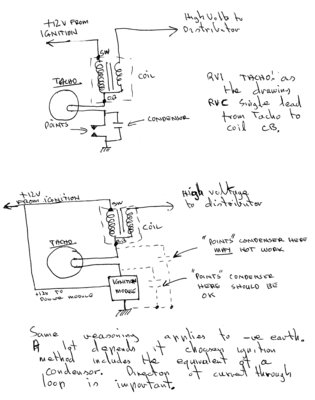 +12V FROM
IGNITION
High Volts to
Distributor
SW
TACHO
COIL
CB
POINTS
CONDENSER
RVI TACHO: as
the drawing
RVC Single lead
from Tacho to
coil CB.
+12V
FROM IGNITION
High voltage
to distributor
SW
COIL
TACHO
CB
"POINTS" CONDENSER HERE
MAY NOT WORK
IGNITION
MODULE
"POINTS" CONDENSER
HERE SHOULD BE
OK
+12V TO
POWER MODULE
Same reasoning applies to -ve earth.
A lot depends if choosey ignition
method includes the equivalent of a
condensor. Director of current through
loop is important.